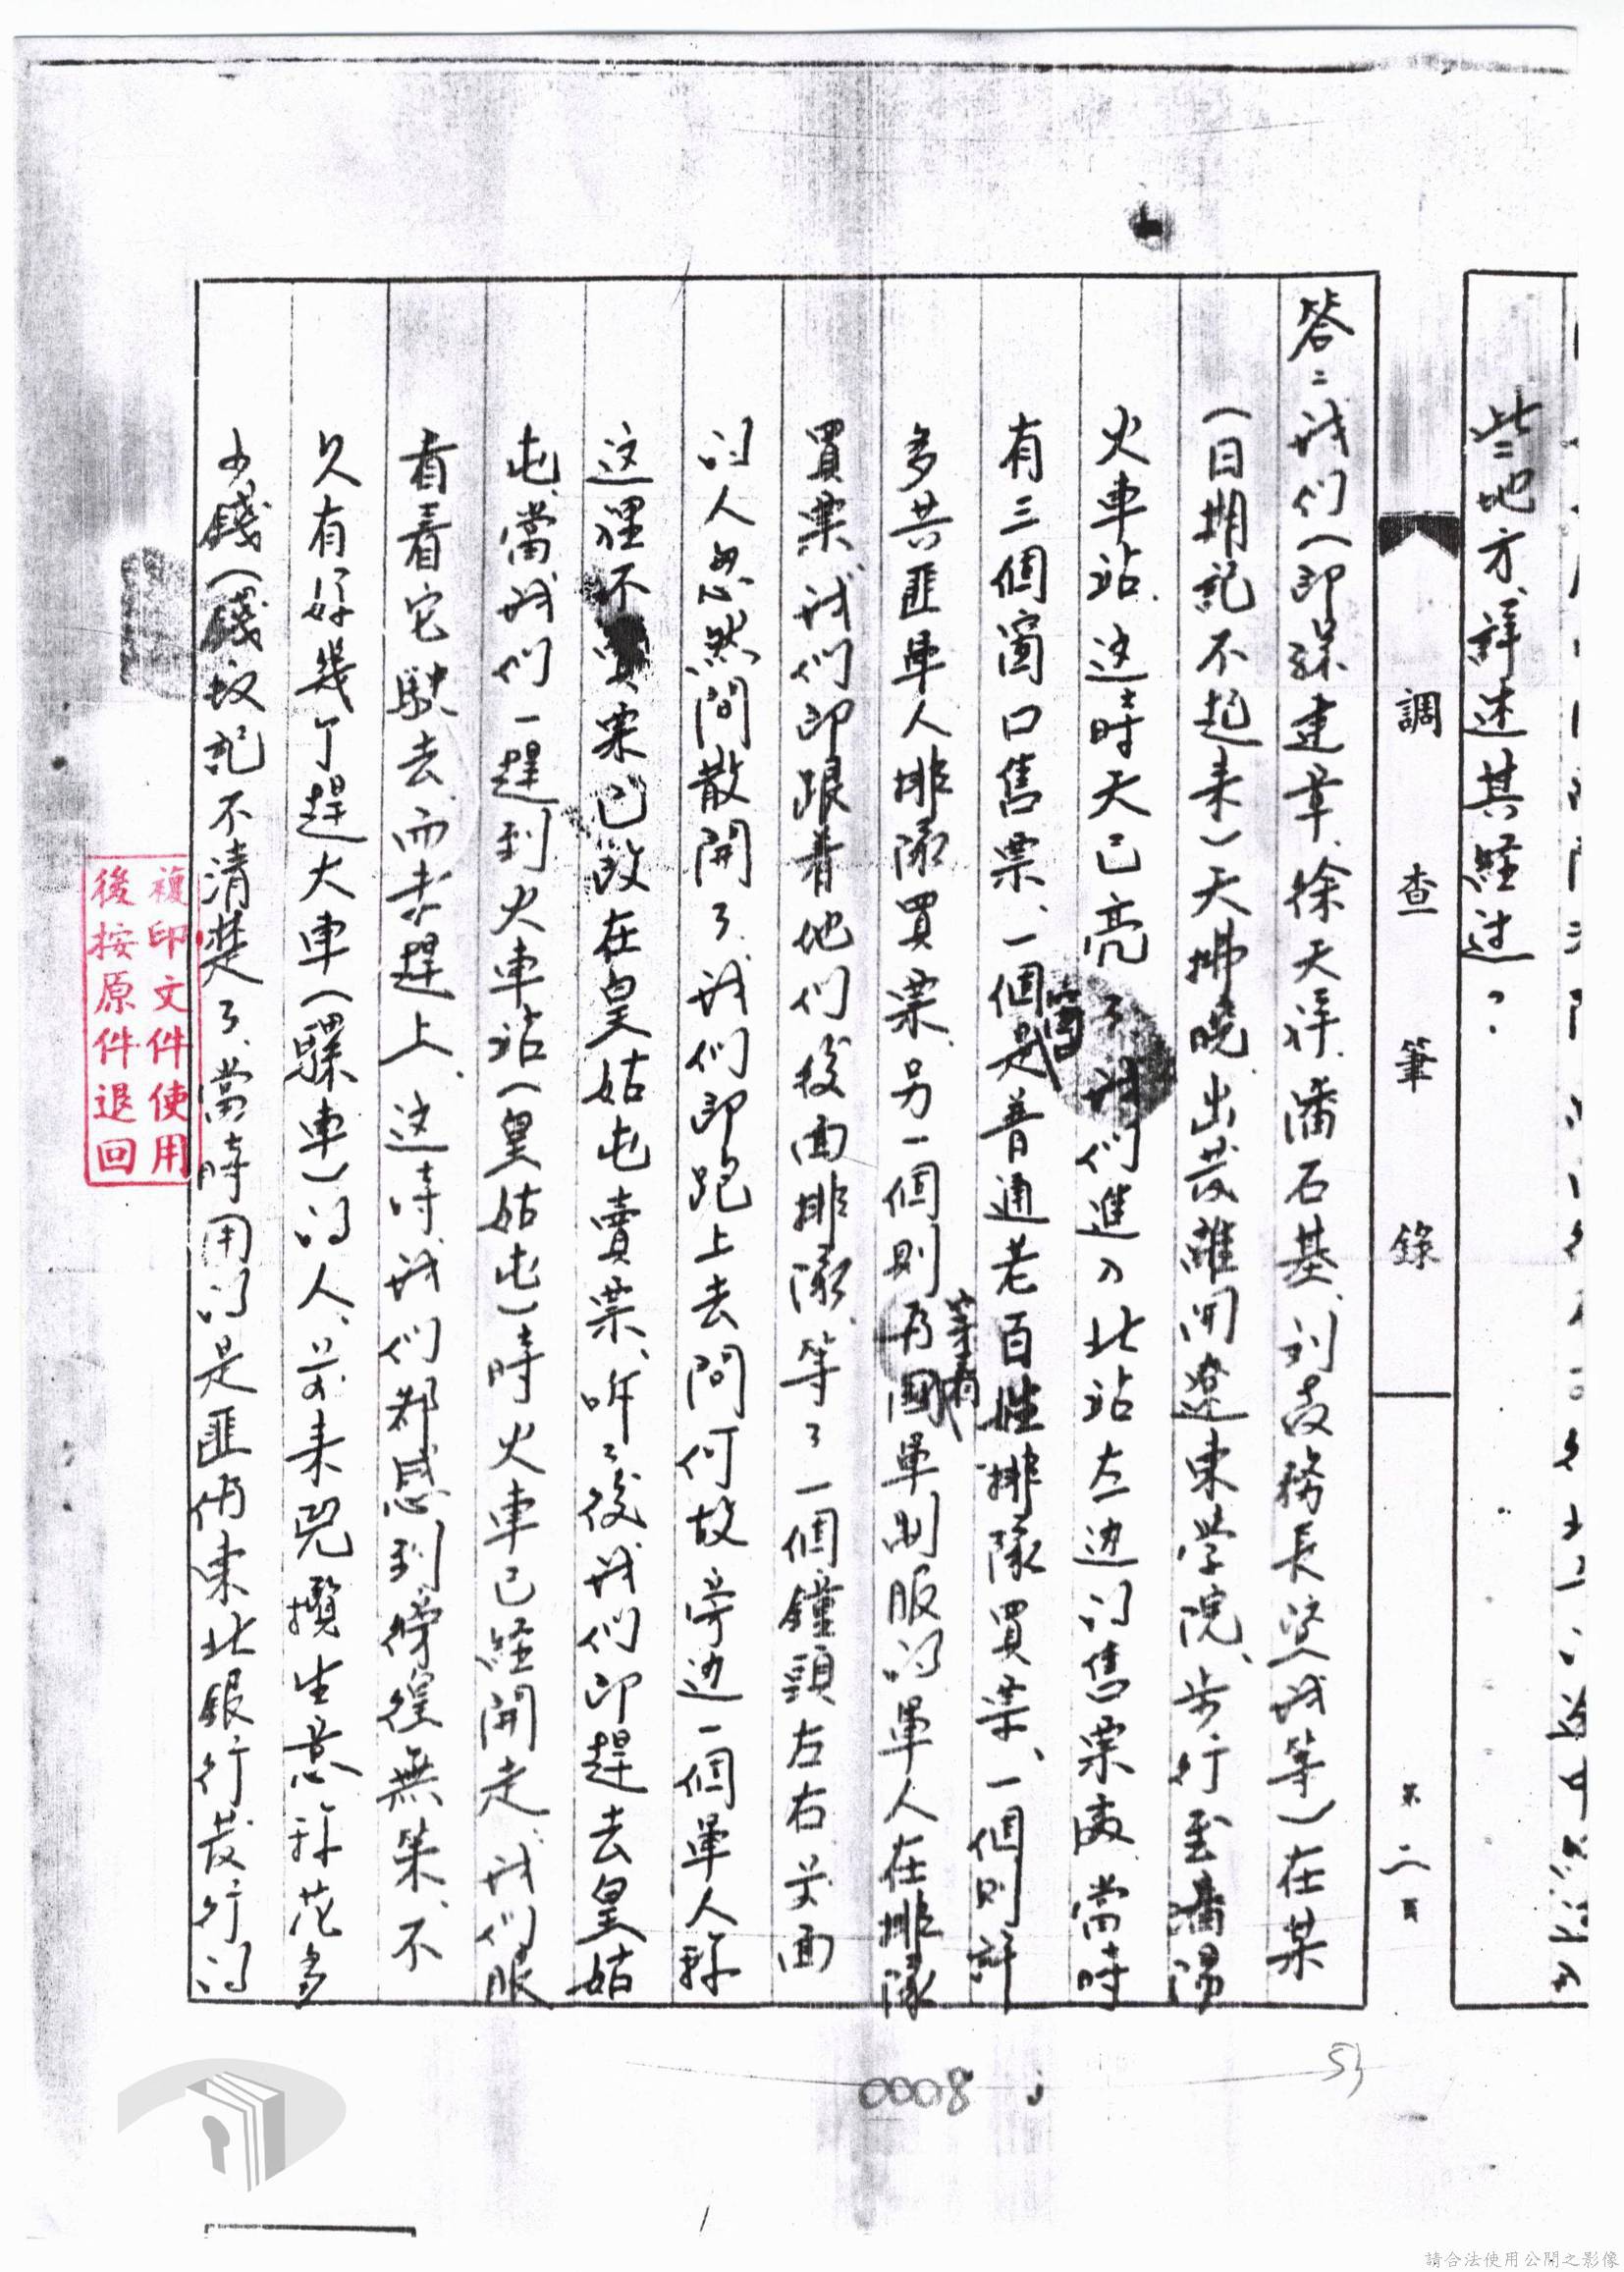 些地方、詳述其經过?.
調查筆錄
第二頁
答:我们(即孫建章、徐天祥、潘石基、刘教務長資我等)在某
(日期記不起来)天拂曉出发離開遼東学院、步行至瀋陽
火車站、这時天已亮了、我们進入北站左边的售票處、當時
有三個窗口售票、一個是普通老百姓排隊買票、一個則許
窗
多共匪軍人排隊買票、另一個則為國軍制服的軍人在排隊
等着
買票、我们即跟着他们後面排隊、等了一個鐘頭左右前面
的人忽然間散開了、我们即跑上去問何故、旁边一個軍人称
这裡不賣票已改在皇姑屯賣票、听了後我们即趕去皇姑
屯、當我们一趕到火車站(皇姑屯)時火車已經開走、我们眼
看着它駛去而未趕上、这時、我们都感到徬徨無策、不
久有好幾个趕大車(騾車)的人、前来兜攬生意、称花多
少錢(錢数記不清楚了、當時用的是匪偽東北銀行发行的
複印文件使用
後按原件退回
0008
53
請合法使用公開之影像